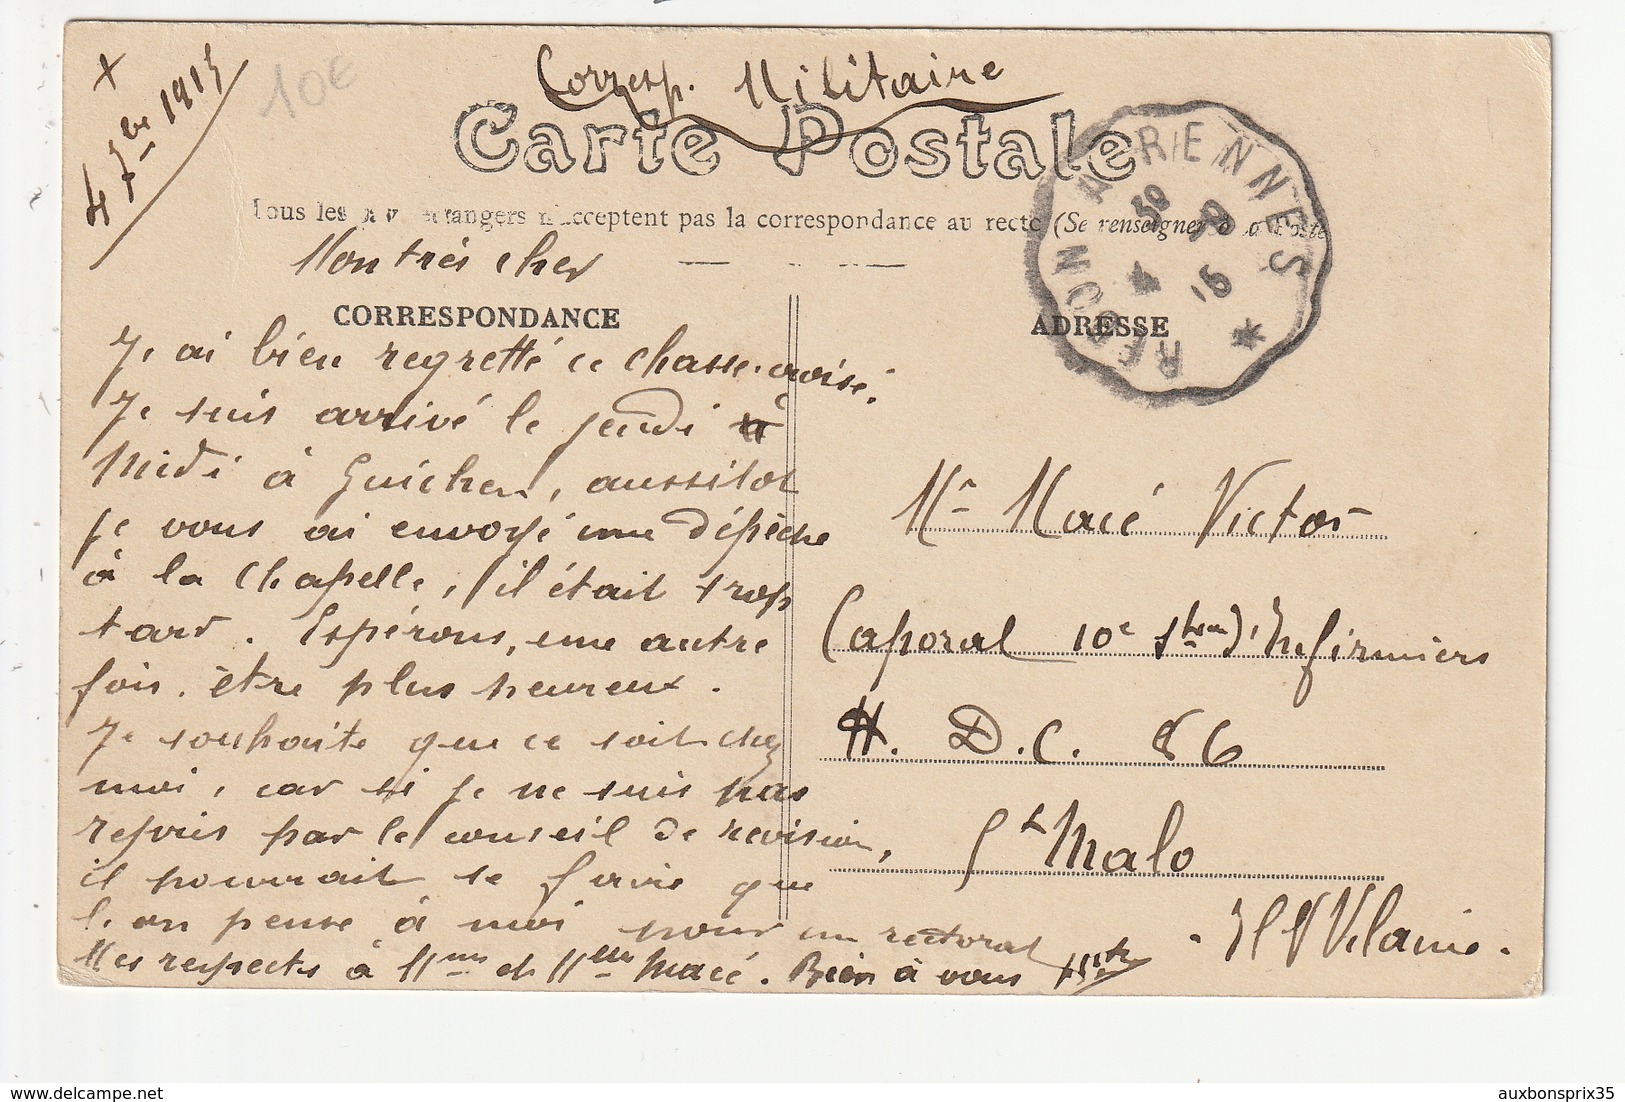 +
4 7bre 1915
10€
Corresp. Militaire
Carte Postale
Tous les pays étrangers n'acceptent pas la correspondance au recto (Se renseigner à la Poste
REDON A RENNES
4 15
Mon très cher
CORRESPONDANCE
ADRESSE
J'ai bien regretté ce chassé-croisé.
Je suis arrivé le jeudi à
midi à Guichen, aussitôt
je vous ai envoyé une dépêche
à la Chapelle, il était trop
tard. Espérons, une autre
fois, être plus heureux.
Je souhaite que ce soit chez
moi, car si je ne suis pas
repris par le conseil de revision,
il pourrait se faire que
l'on pense à moi pour un rectorat
Mes respects à Mme et Melle Macé. Bien à vous
Mr Macé Victor
Caporal 10e Son d'Infirmiers
H. D. C. 86
St Malo
Ill & Vilaine.
delcampe.net
auxbonsprix35